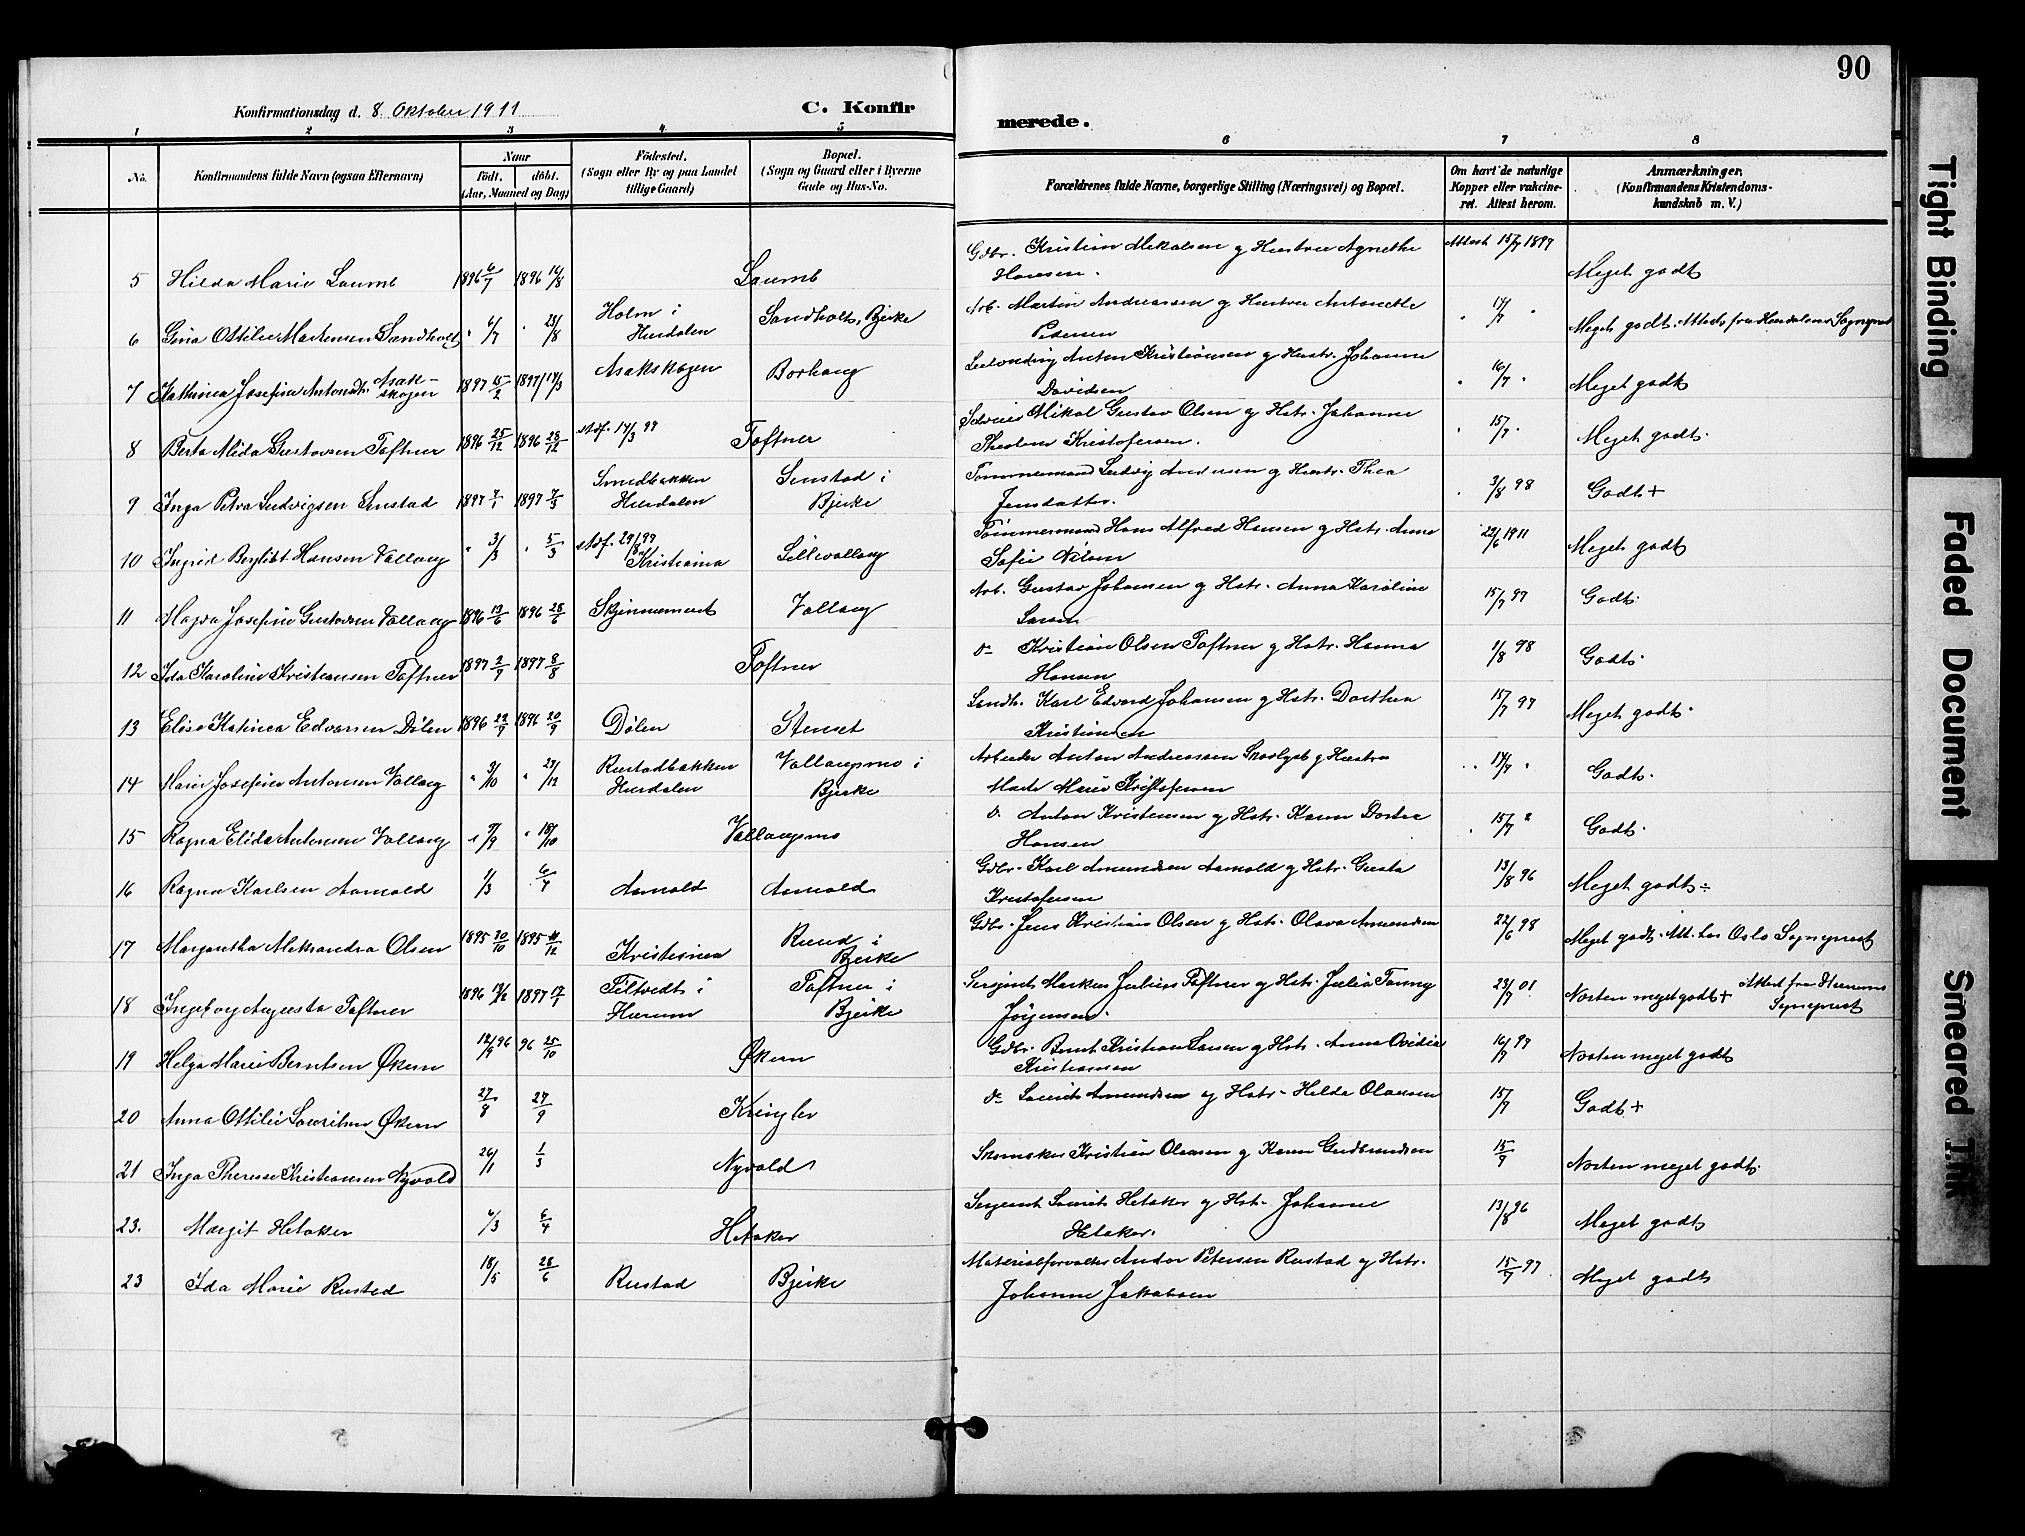 90
Konfirmationsdag d. 8. Oktober 1911
C. Konfir
merede.
1 2 3 4 5 6 7 8
No.
Konfirmandens fulde Navn (ogsaa Efternavn)
Naar
födt. döbt.
(Aar, Maaned og Dag)
Födested.
(Sogn eller By og paa Landet
tillige Gaard)
Bopæl.
(Sogn og Gaard eller i Byerne
Gade og Hus-No.
Forældrenes fulde Navne, borgerlige Stilling (Næringsvei) og Bopæl.
Om havt de naturlige
Kopper eller vakcine-
ret. Attest herom.
Anmærkninger.
(Konfirmandens Kristendoms-
kundskab m. V.)
5 Hilda Marie Laumb 1896 6/7 1896 16/8 Laumb Gdbr. Kristian Mikalsen og Hustru Agnethe Hansen. Attest 15/7 1897 Meget godt
6 Gina Ottilie Martensen Sandholt " 6/7 " 23/8 Holm i Hurdalen Sandholt, Bjerke Arb. Martin Andreassen og Hustru Antonette Petersen " 17/7 " Meget godt. Attest fra Hurdalens Sognepræst
7 Kathinca Josefine Antonsdtr. Asak-skogen 1897 15/2 1897 14/3 Asakskogen Borhaug Leilending Anton Kristiansen og Hustr. Johanne Davidsen " 16/7 " Meget godt
8 Berta Alida Gustavsen Toftner 1896 25/12 1896 28/12 stdf. 14/3 97 Toftner Selveier Mikal Gustav Olsen og Hstr. Johanne Theoline Kristofersen. " 15/7 " Meget godt.
9 Inga Petra Ludvigsen Sustad 1897 7/1 1897 7/3 Smedbakken Hurdalen Sustad i Bjerke Tømmermand Ludvig Andersen og Hustr. Thea Jensdatter. " 3/8 98 Godt +
10 Ingrid Berglibt Hansen Vallaug " 3/3 " 5/3 stdf. 29/8 97 Kristiania Lillevallaug Tømmermand Hans Alfred Hansen og Hstr. Anna Sofie Nilsen 29/6 1911 Meget godt
11 Magda Josefine Gustavsen Vallaug 1896 13/6 1896 28/6 Skjennumeiet Vallaug Arb. Gustav Johansen og Hstr. Anna Karoline Larsen 15/7 97 Godt.
12 Ida Karoline Kristiansen Toftner 1897 2/7 1897 8/8 Toftner do Kristian Olsen Toftner og Hstr. Hanna Hansen 1/8 98 Godt.
13 Elise Katinca Edvarsen Dølen 1896 1896 20/9 Dølen Stenset Landh. Karl Edvard Johansen og Hstr. Dorthea Kristiansen 15/7 97 Meget godt.
14 Marie Josefine Antonsen Vallaug " 3/10 " 27/12 Rustadbakken Hurdalen Vallaugsmo i Bjerke Arbeider Anton Andreassen Skovlyst og Hustru Marte Marie Kristofersen " 14/7 " Godt.
15 Ragna Elida Antonsen Vallaug " 9/9 " 18/10 Vallaugsmo do. Anton Kristensen og Hstr. Karen Dortea Hansen " 15/7 " Godt.
16 Ragna Karlsen Aamold 1/3 6/4 Aamold Aamold Gdbr. Karl Amundsen Aamold og Hstr. Gusta Kristofersen 13/8 96 Meget godt ÷
17 Margaretha Aleksandra Olsen 1895 20/10 1895 Kristiania Ruud i Bjerke Gdbr. Jens Kristian Olsen og Hstr. Olava Amundsen 22/6 98 Meget godt. Att. fra Oslo Sognepræst
18 Ingeborg Augusta Toftner 1896 19/12 1897 17/1 Filtvedt i Hurum Toftner i Bjerke Sergjent Markus Julius Toftner og Hstr. Julia Fanny Jørgensen. 23/7 01 Næsten meget godt + Attest fra Hurums Sognepræst
19 Helga Marie Berntsen Økern 12/9 96 96 25/10 Økern Gdbr. Bernt Kristian Larsen og Hstr. Anna Ovidia Kristiansen 16/7 97 Næsten meget godt
20 Anna Ottilie Lauritsen Økern 27/8 27/9 Kringler do Laurits Amundsen og Hstr. Hilda Olausen 15/7 Godt +
21 Inga Therese Kristiansen Nyvold 26/1 1/3 Nyvold Skomaker Kristian Olausen og Karen Gudbrandsen 15/9 Næsten meget godt.
23. Margit Hetaker 6/3 6/4 Hetaker Sergeant Laurits Hetaker og Hst. Johanne Hetaker. 13/8 96 Meget godt
23 Ida Marie Rustad 18/5 28/6 Rustad Bjerke Materialforvalter Andor Petersen Rustad og Hstr. Johanne Jakobsen 15/7 97 Meget godt
Tight Binding
Faded Document
Smeared Ink